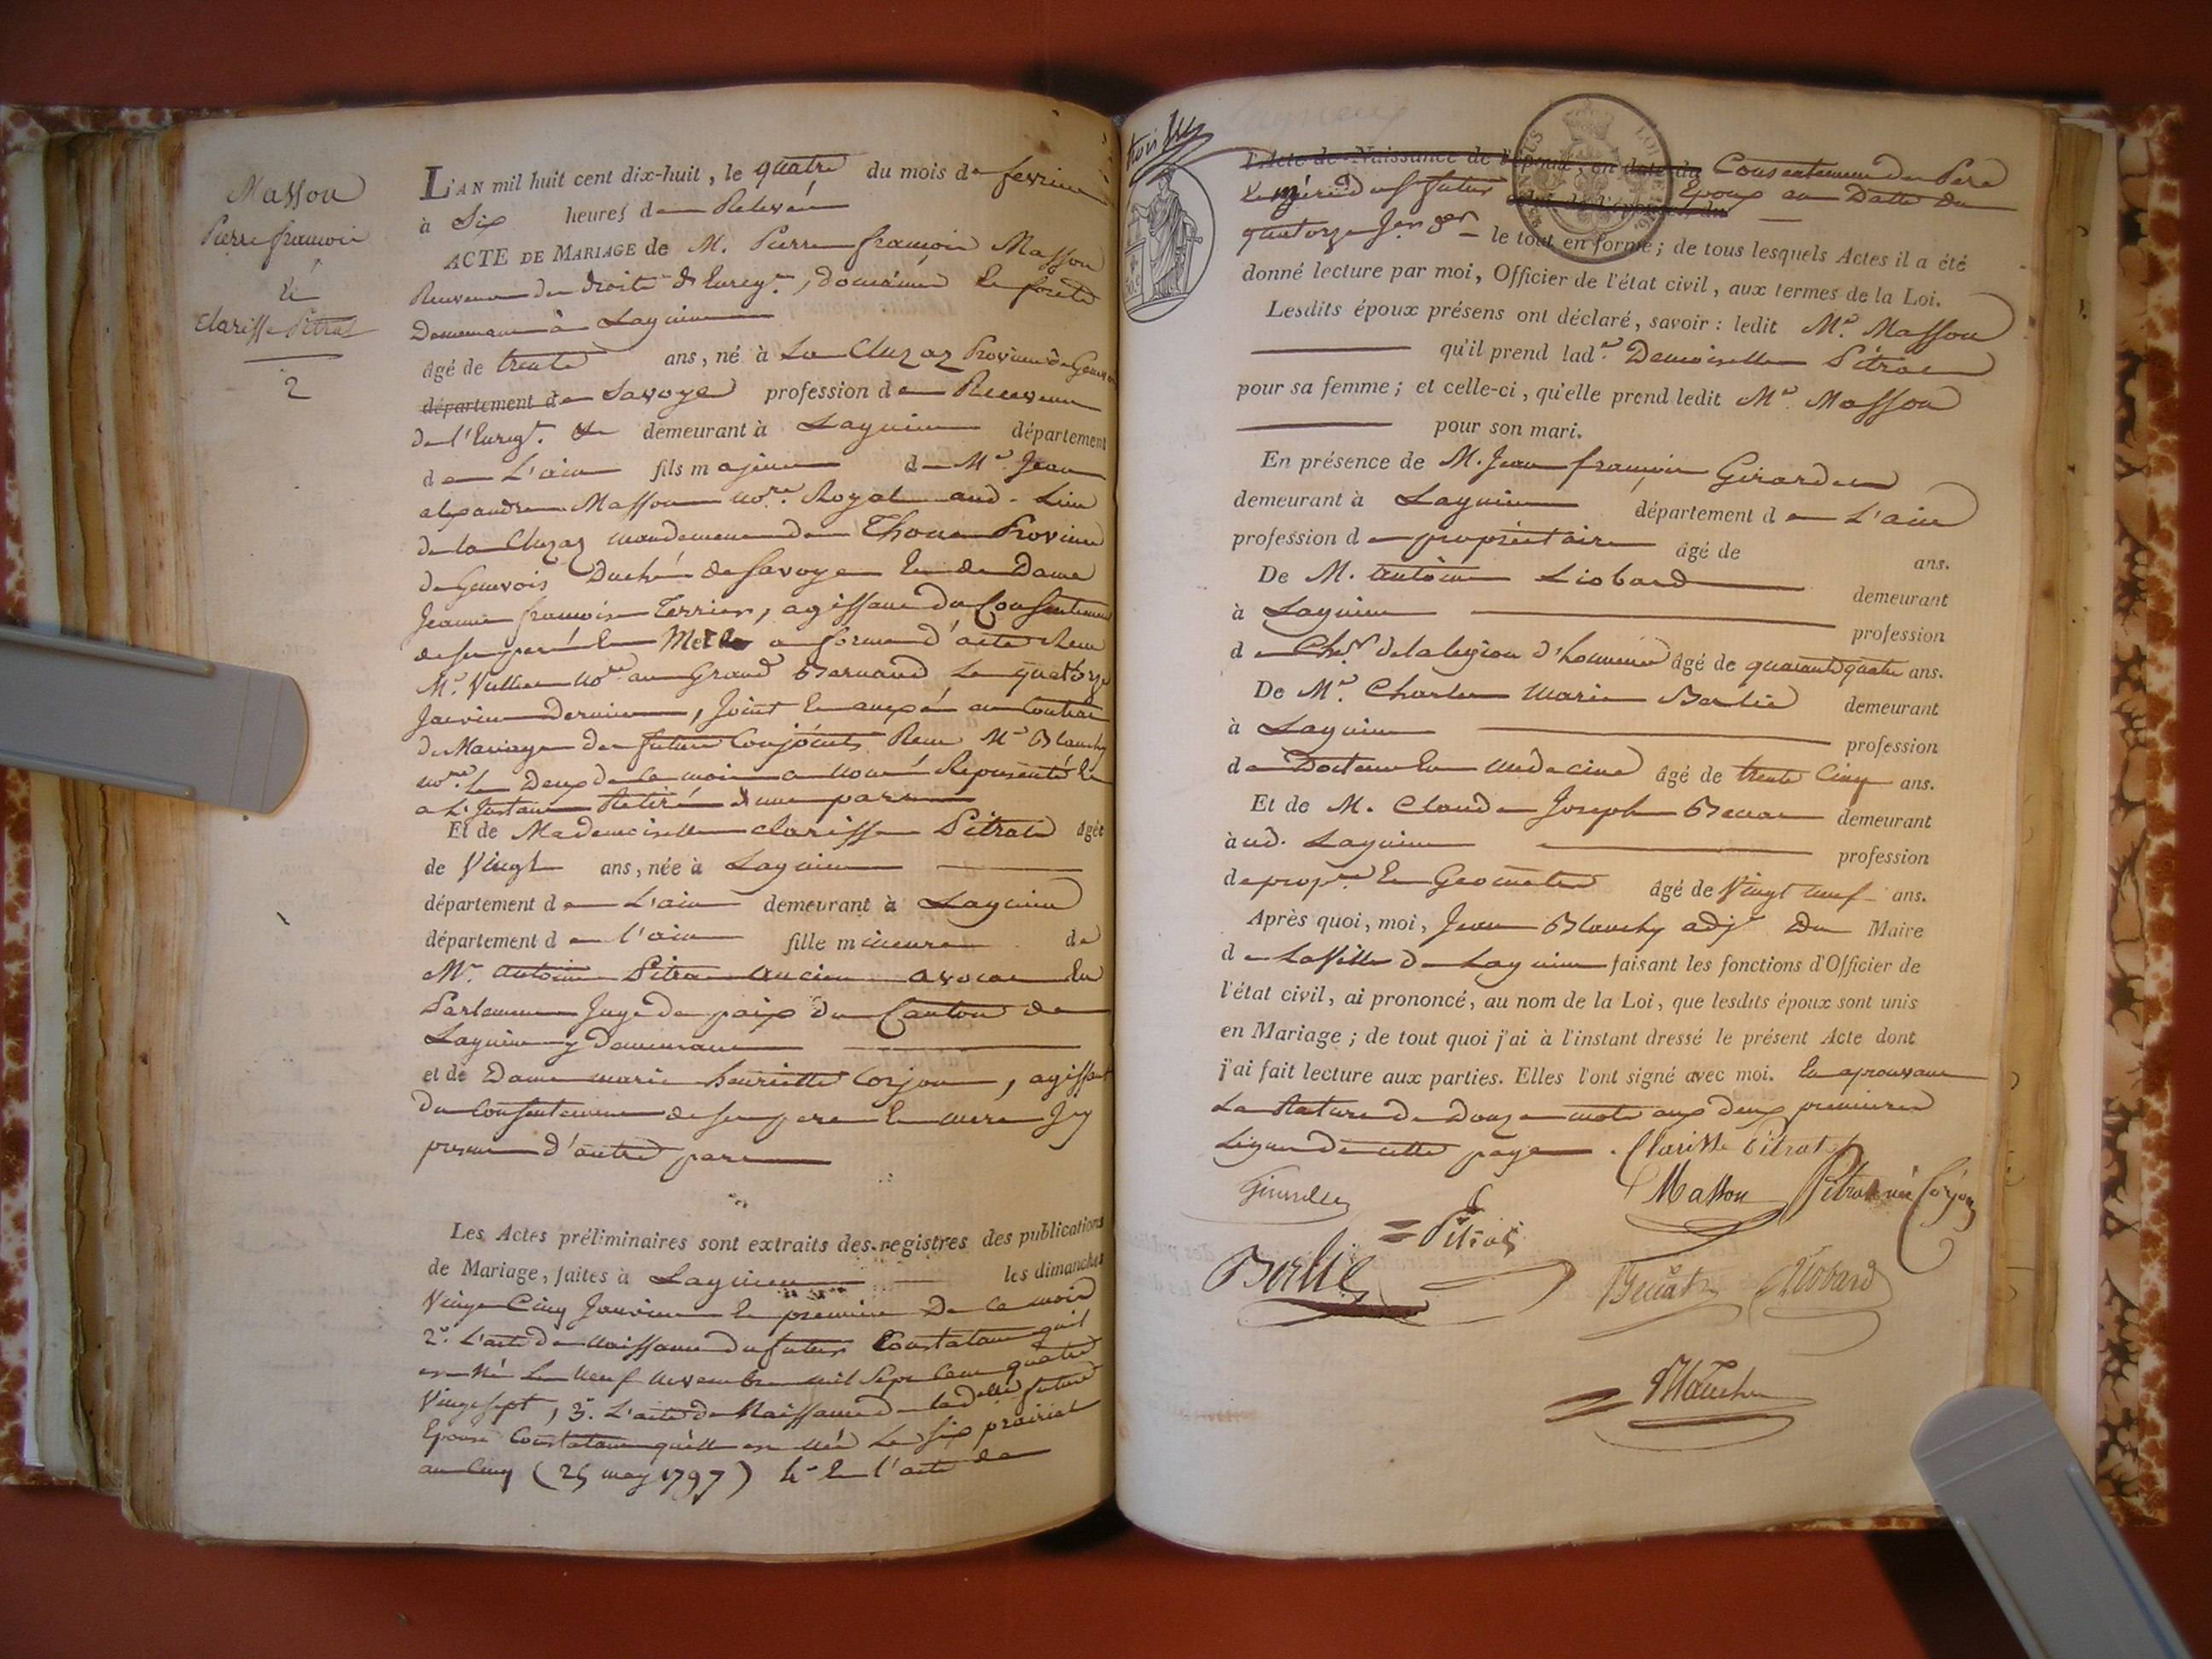 Masson
Pierre françois
&
Clarisse Pitrat
2
L'AN mil huit cent dix-huit, le quatre du mois de fevrier
à Six heures de Relevée
ACTE DE MARIAGE de M. Pierre françois Masson
Receveur des droits d'Enregt., domaines et forets
Demeurant à Lagnieu
âgé de trente ans, né à La Cluzaz Province de Genevois
département de Savoye profession de Receveur
de l'Enregt. & demeurant à Lagnieu département
de L'ain fils majeur de Mr. Jean
alexandre Masson nore. Royal aud. Lieu
de la Cluzaz mandement de Thone Province
de Genevois Duché de Savoye et de Dame
Jeanne françoise Terrier, agissant du Consentement
de ses pere et Mere en forme d'acte Recu
Mr. Vullier nore. au Grand Bernand Le quatorze
Janvier Dernier, Joint et annexé au Contrat
de Mariage des futurs Conjoints Recu Me Blanchy
nore. le Deux de ce mois a nous Representé et
a L'Instant Retiré d'une part
Et de Mademoiselle clarisse Pitrat âgée
de Vingt ans, née à Lagnieu
département de L'ain demeurant à Lagnieu
département de l'ain fille mineure de
Mr. antoine Pitrat ancien avocat en
Parlement Juge de paix du Canton de
Lagnieu y Demeurant
et de Dame marie henriette Corjon, agissant
du Consentement de ses pere et mere Icy
presens d'autre part
Les Actes préliminaires sont extraits des registres des publications
de Mariage, faites à Lagnieu les dimanches
Vingt Cinq Janvier et premier de ce mois
2°. L'acte de naissance du futur Constatant qu'il
est né Le neuf novembre mil Sept Cent quatre
Vingt sept, 3°. L'acte de Naissance de lad. elle future
Epouse Constatant qu'elle est née Le six prairial
an cinq (25 may 1797) 4° Et l'acte de
l'Acte de Naissance de l'épouse, en date du Consentement des Pere
et mère du futur Epoux en Datte du
quatorze Janer - le tout en forme; de tous lesquels Actes il a été
donné lecture par moi, Officier de l'état civil, aux termes de la Loi.
Lesdits époux présens ont déclaré, savoir: ledit Mr. Masson
qu'il prend lade. Demoiselle Pitrat
pour sa femme; et celle-ci, qu'elle prend ledit Mr. Masson
pour son mari.
En présence de M. Jean françois Girardet
demeurant à Lagnieu département de L'ain
profession de propriétaire âgé de ans.
De M. antoine Liobard demeurant
à Lagnieu profession
de Cher. de la légion d'honneur âgé de quarante quatre ans.
De Mr. Charles Marie Berlie demeurant
à Lagnieu profession
de Docteur en medecine âgé de trente Cinq ans.
Et de M. Claude Joseph demeurant
à ud. Lagnieu profession
de propre. et Geometre âgé de Vingt neuf ans.
Après quoi, moi, Jean Blanchy adjt. Du Maire
de La Ville de Lagnieu faisant les fonctions d'Officier de
l'état civil, ai prononcé, au nom de la Loi, que lesdits époux sont unis
en Mariage; de tout quoi j'ai à l'instant dressé le présent Acte dont
j'ai fait lecture aux parties. Elles l'ont signé avec moi. En aprouvant
La Rature de Douze mots aux deux premieres
Lignes de cette page. Clarisse Pitrat
Masson Pitrat née Corjon
Pitrat
Berlie Liobard
Blanchy